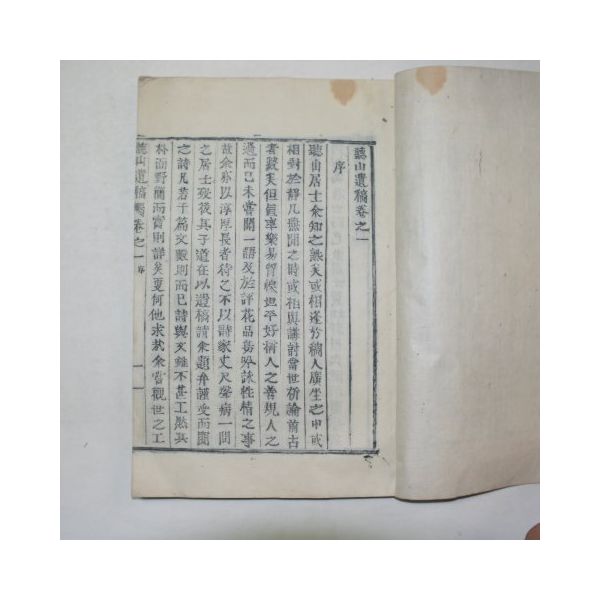 聽山遺稿卷之一
序
聽山居士余知之熟矣或相逢於稠人廣坐之中或
相對於靜几無聞之時或相與講討當世析論前古
者數矣但氣率樂易質樸坦平好稱人之善規人之
過而已未嘗聞一語及於評花品 吟詠性情之事
故余嘗以淳厚長者待之不以詩家丈尺繩病一問
之居士歿後其子道在以遺稿請余題弁謹受而閱
之詩凡若干篇文數則而已詩與文雖不甚工然其
朴而野簡而實則詳矣夏何他求哉余嘗觀世之工
聽山遺稿 卷之一 序 一